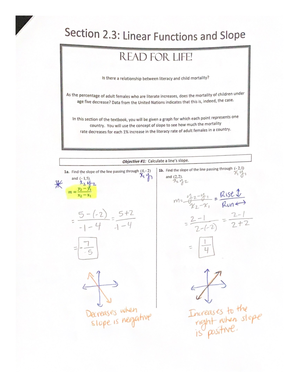 Section 2.3: Linear Functions and Slope
READ FOR LIFE!
Is there a relationship between literacy and child mortality?
As the percentage of adult females who are literate increases, does the mortality of children under
age five decrease? Data from the United Nations indicates that this is, indeed, the case.
In this section of the textbook, you will be given a graph for which each point represents one
country. You will use the concept of slope to see how much the mortality
rate decreases for each 1% increase in the literacy rate of adult females in a country.
Objective #1: Calculate a line's slope.
1a. Find the slope of the line passing through (4,-2)
and (-1,5).
x₁ y₁
x₂ y₂
m = y₂ - y₁ / x₂ - x₁
= 5-(-2) / -1-4 = 5+2 / -1-4
= 7 / -5
Decreases when
slope is negative
1b. Find the slope of the line passing through (-2,1)
and (2,2).
x₁ y₁
x₂ y₂
m = y₂-y₁ / x₂-x₁ Rise ↕ Run ↔
= 2-1 / 2-(-2) = 2-1 / 2+2
= 1 / 4
Increases to the
right when slope
is positive